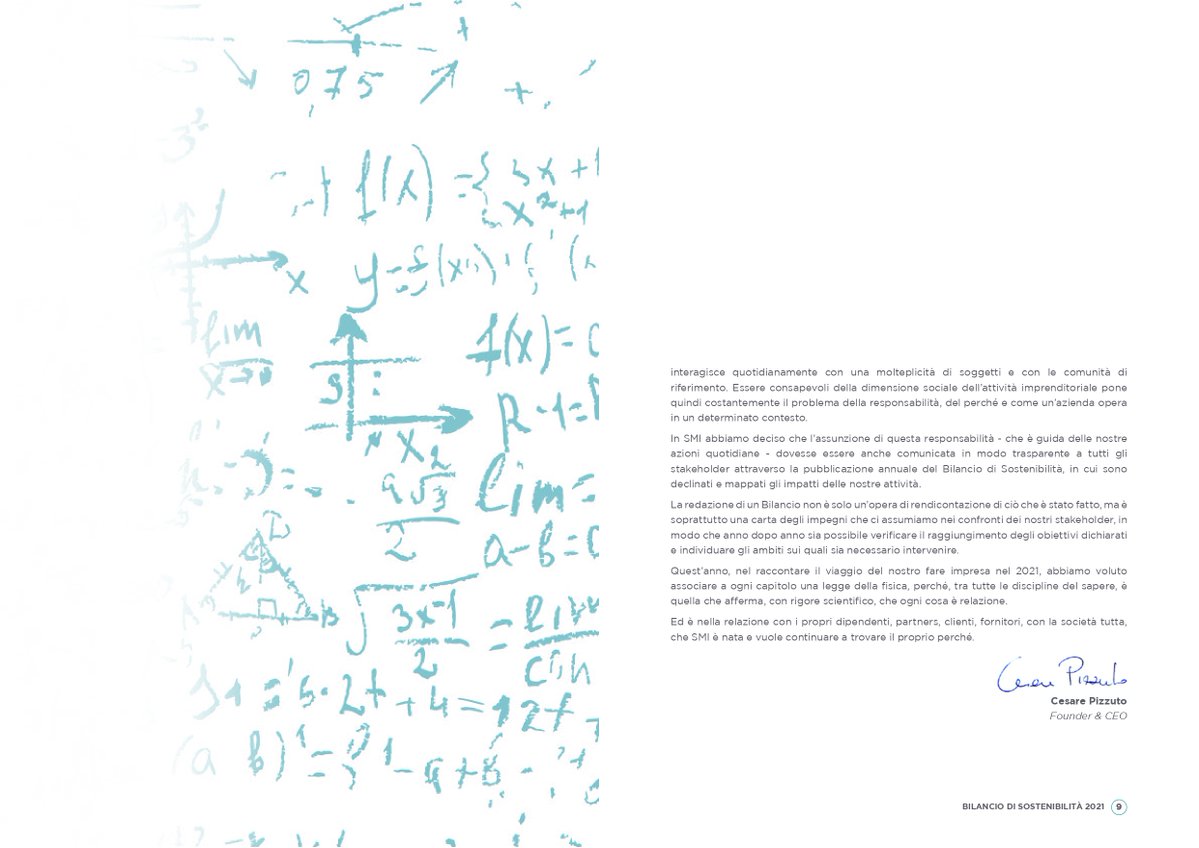 0,75
f(x)
3x+
x²+1
x
y=
lim
f(x)=
x
R·1=
x
lim=
a-b=
2
3x-1
2
=5·2t+4=12t
(a b)
interagisce quotidianamente con una molteplicità di soggetti e con le comunità di
riferimento. Essere consapevoli della dimensione sociale dell'attività imprenditoriale pone
quindi costantemente il problema della responsabilità, del perché e come un'azienda opera
in un determinato contesto.
In SMI abbiamo deciso che l'assunzione di questa responsabilità - che è guida delle nostre
azioni quotidiane - dovesse essere anche comunicata in modo trasparente a tutti gli
stakeholder attraverso la pubblicazione annuale del Bilancio di Sostenibilità, in cui sono
declinati e mappati gli impatti delle nostre attività.
La redazione di un Bilancio non è solo un'opera di rendicontazione di ciò che è stato fatto, ma è
soprattutto una carta degli impegni che ci assumiamo nei confronti dei nostri stakeholder, in
modo che anno dopo anno sia possibile verificare il raggiungimento degli obiettivi dichiarati
e individuare gli ambiti sui quali sia necessario intervenire.
Quest'anno, nel raccontare il viaggio del nostro fare impresa nel 2021, abbiamo voluto
associare a ogni capitolo una legge della fisica, perché, tra tutte le discipline del sapere, è
quella che afferma, con rigore scientifico, che ogni cosa è relazione.
Ed è nella relazione con i propri dipendenti, partners, clienti, fornitori, con la società tutta,
che SMI è nata e vuole continuare a trovare il proprio perché.
Cesare Pizzuto
Cesare Pizzuto
Founder & CEO
BILANCIO DI SOSTENIBILITÀ 2021 9